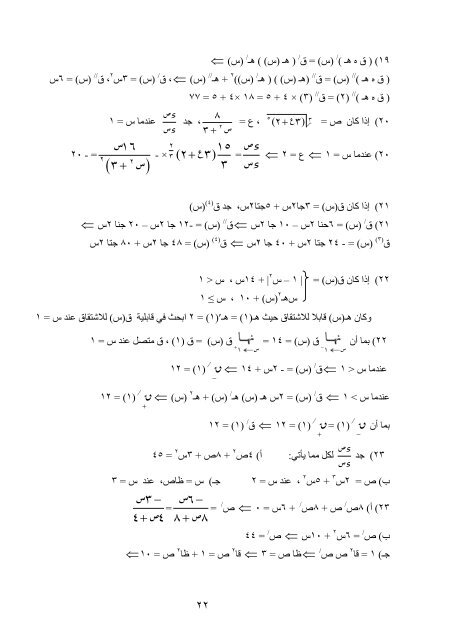 ١٩) ( ق ه هـ )/ (س) = ق/ ( هـ (س) ) هـ/ (س) ⇐
( ق ه هـ )// (س) = ق// (هـ (س) ) ( هـ/ (س))٢ + هـ// (س) ⇐ ، ق/ (س) = ٣س٢، ق// (س) = ٦س
( ق ه هـ )// (٢) = ق// (٣) × ٤ + ٥ = ١٨ × ٤ + ٥ = ٧٧
٢٠) إذا كان ص = (٣ع + ٢)٥ ، ع = ٨ / (س٢ + ٣) ، جد ءص / ءس عندما س = ١
٢٠) عندما س = ١ ⇐ ع = ٢ ⇐ ءص / ءس = ١٥ / ٣ (٣ع + ٢)٢/٣ × - ١٦س / (س٢ + ٣)٢ = - ٢٠
٢١) إذا كان ق(س) = ٣جا٢س + ٥جتا٢س، جد ق(٤)(س)
٢١) ق/ (س) = ٦جتا ٢س – ١٠ جا ٢س ⇐ ق// (س) = -١٢ جا ٢س – ٢٠ جتا ٢س ⇐
ق(٣) (س) = - ٢٤ جتا ٢س + ٤٠ جا ٢س ⇐ ق(٤) (س) = ٤٨ جا ٢س + ٨٠ جتا ٢س
٢٢) إذا كان ق(س) = { | ١ – س٢| + ١٤س ، س < ١
سهـ٢(س) + ١٠ ، س ≥ ١
وكان هـ(س) قابلا للاشتقاق حيث هـ(١) = هـ/(١) = ٢ ابحث في قابلية ق(س) للاشتقاق عند س = ١
٢٢) بما أن نهـا س←١- ق (س) = ١٤ = نهـا س←١+ ق (س) = ق (١) ، ق متصل عند س = ١
عندما س < ١ ⇐ ق/ (س) = - ٢س + ١٤ ⇐ ق/- (١) = ١٢
عندما س > ١ ⇐ ق/ (س) = ٢س هـ (س) هـ/ (س) + هـ٢ (س) ⇐ ق/+ (١) = ١٢
بما أن ق/- (١) = ق/+ (١) = ١٢ ⇐ ق/ (١) = ١٢
٢٣) جد ءص / ءس لكل مما يأتي: أ) ٤ص٢ + ٨ص + ٣س٢ = ٤٥
ب) ص = ٢س٣ + ٥س٢ ، عند س = ٢ جـ) س = ظاص، عند س = ٣
٢٣) أ) ٨ص/ ص + ٨ص/ + ٦س = ٠ ⇐ ص/ = -٦س / (٨ص + ٨) = -٣س / (٤ص + ٤)
ب) ص/ = ٦س٢ + ١٠س ⇐ ص/ = ٤٤
جـ) ١ = قا٢ ص ص/ ⇐ ظا ص = ٣ ⇐ قا٢ ص = ١ + ظا٢ ص = ١٠ ⇐
٢٢